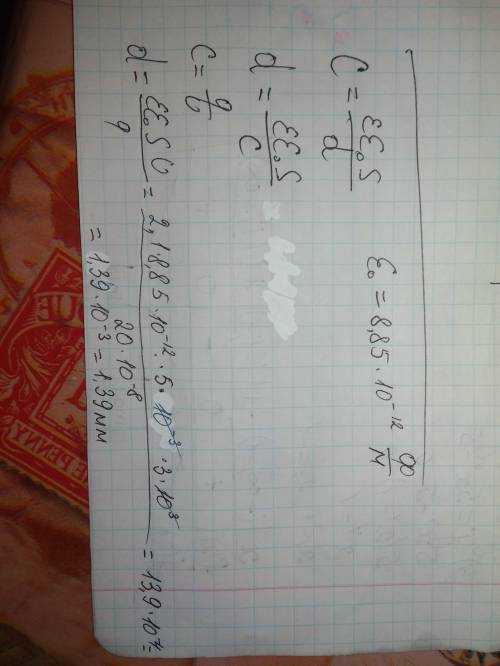 C = εε₀S/d ε₀ = 8,85·10⁻¹² Ф/м
d = εε₀S/C
C = q/U
d = εε₀SU/q = 2,1·8,85·10⁻¹²·5·10⁻³·3·10³/20·10⁻⁸ = 13,9·10⁻⁴=
= 1,39·10⁻³ = 1,39мм
PENNY